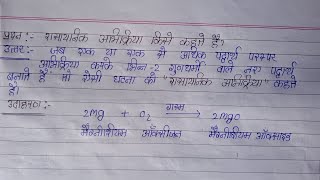 प्रश्न:- रासायनिक अभिक्रिया किसे कहते हैं?
उत्तर:- जब एक या एक से अधिक पदार्थ परस्पर
अभिक्रिया करके भिन्न-2 गुणधर्मों वाले नए पदार्थ
बनाते हैं तो ऐसी घटना को "रासायनिक अभिक्रिया" कहते
हैं।
उदाहरण:- 2Mg + O₂ गरम → 2MgO
मैग्नीशियम ऑक्सीजन मैग्नीशियम ऑक्साइड